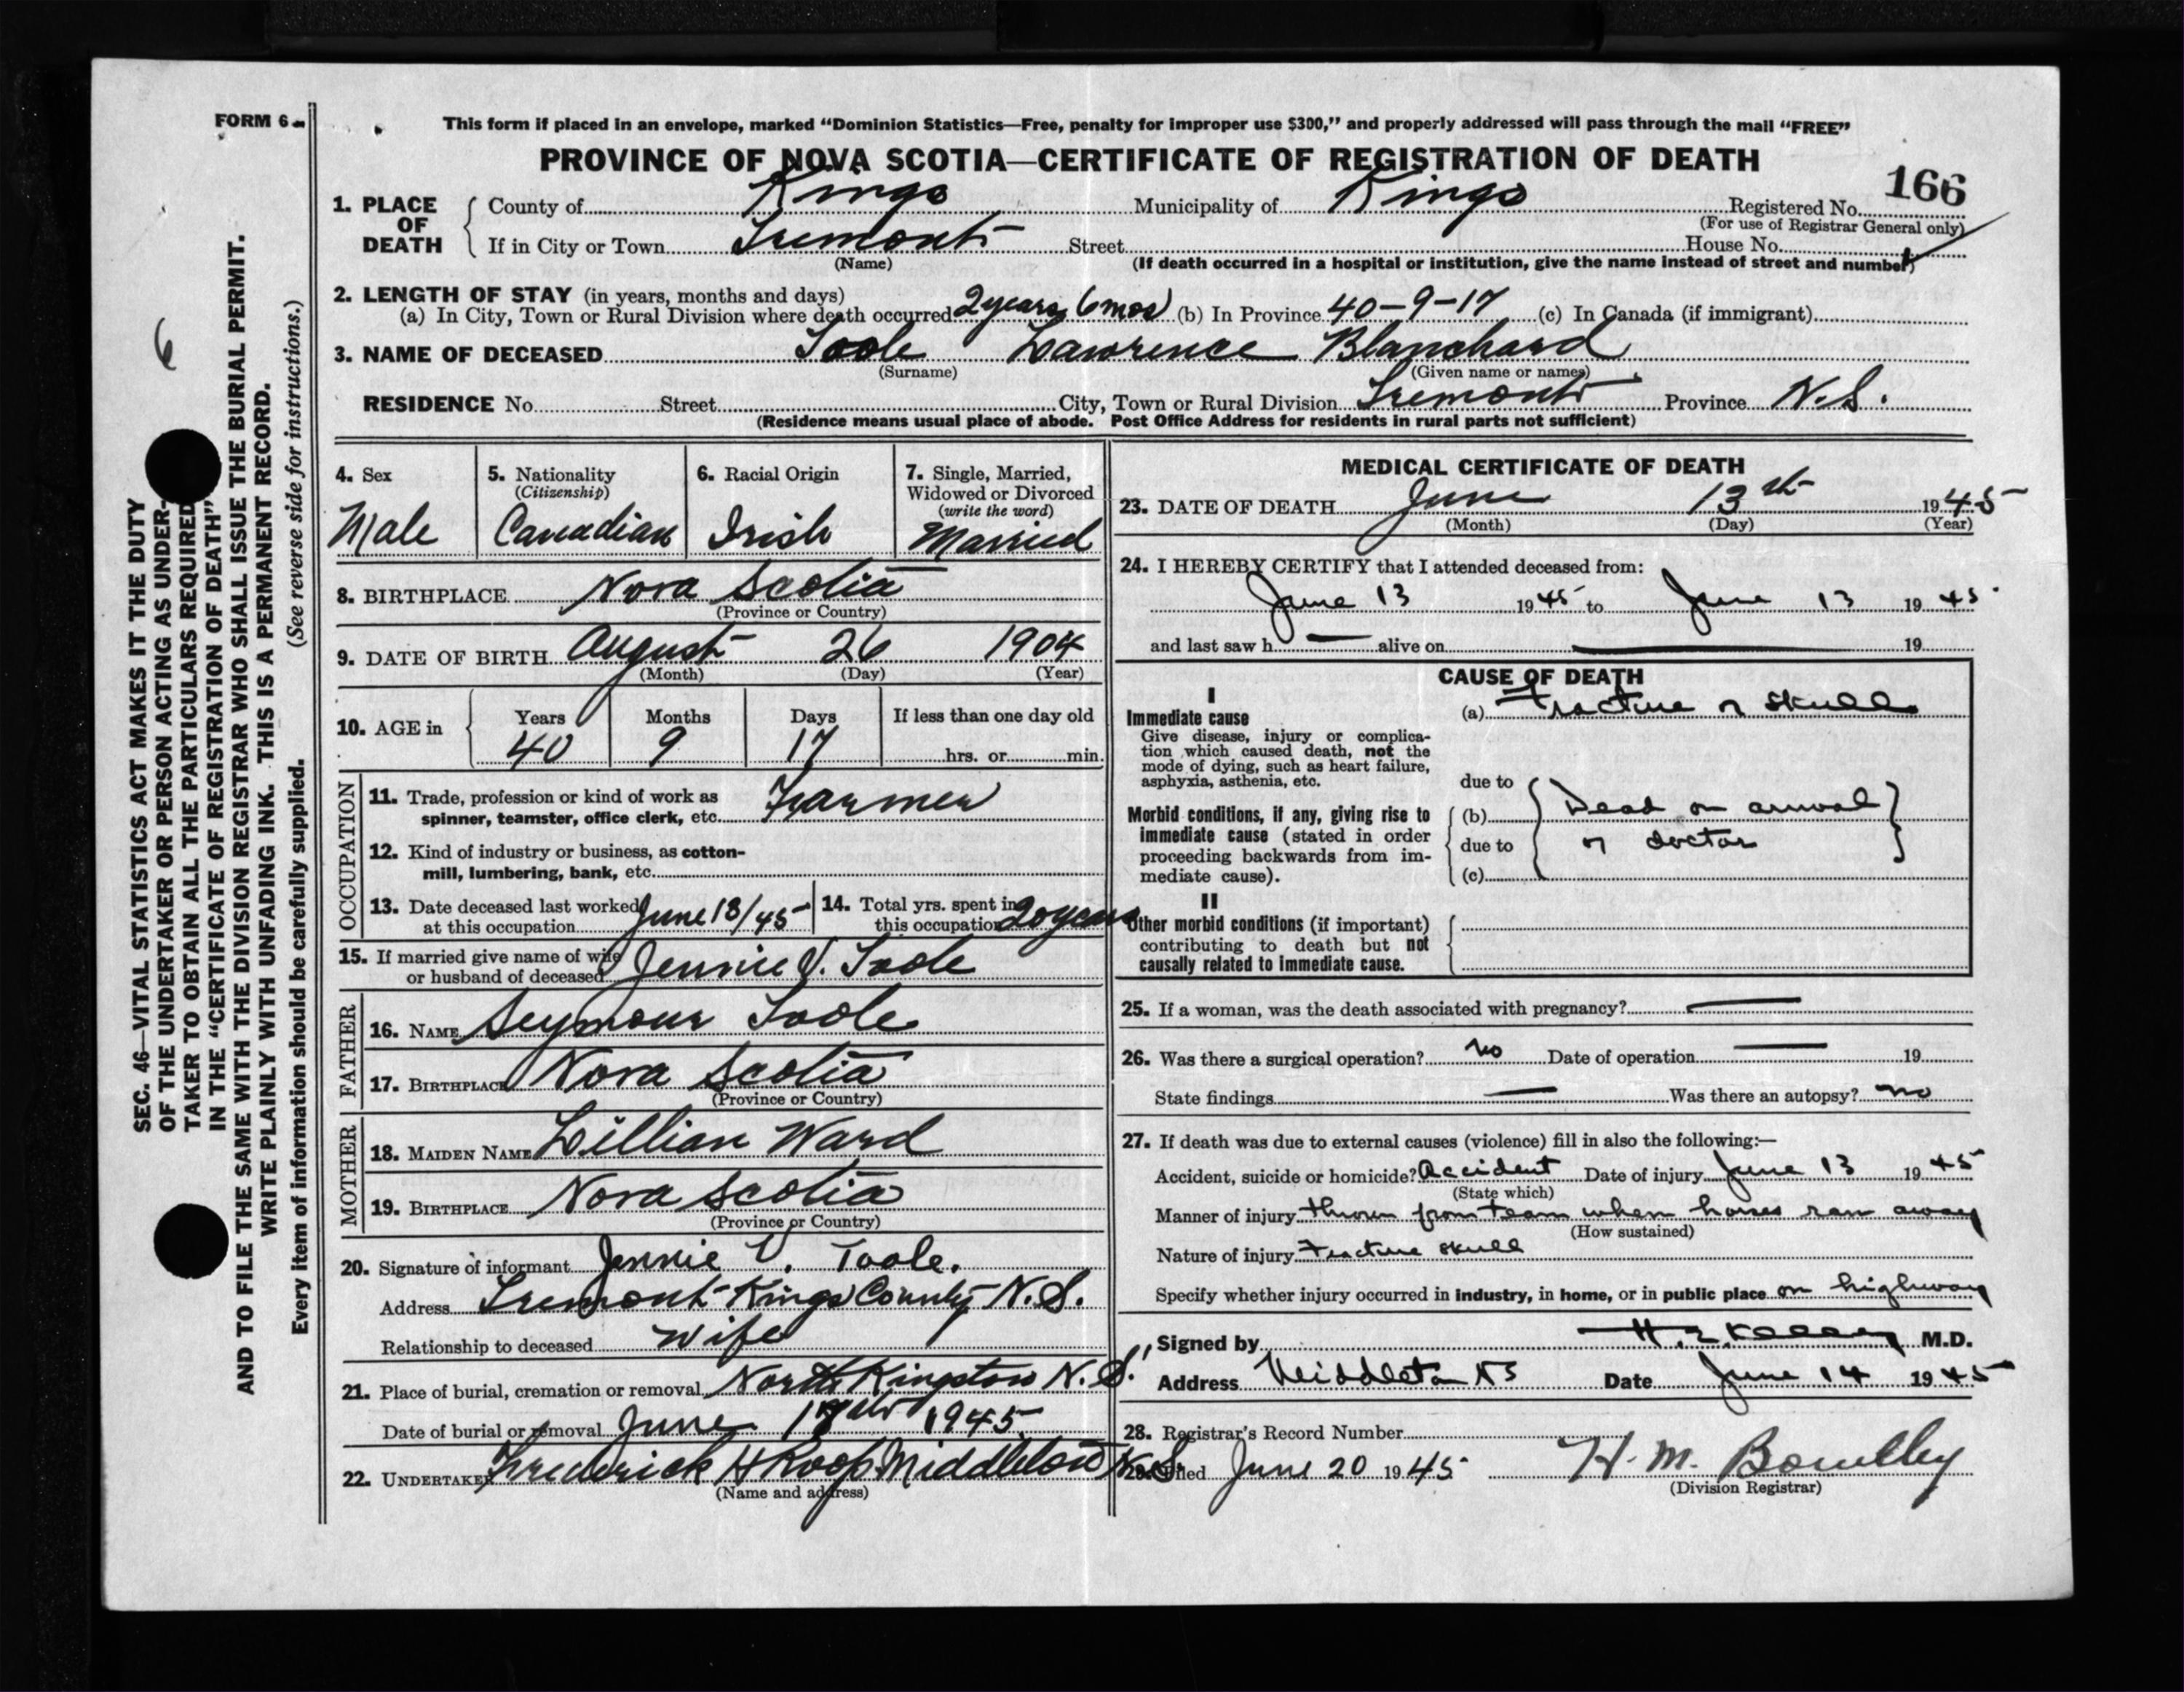 FORM 6
This form if placed in an envelope, marked “Dominion Statistics—Free, penalty for improper use $300,” and properly addressed will pass through the mail “FREE”
PROVINCE OF NOVA SCOTIA—CERTIFICATE OF REGISTRATION OF DEATH
166
1. PLACE OF DEATH County of Kings Municipality of Kings Registered No.
(For use of Registrar General only)
If in City or Town Tremont Street House No.
(Name) (If death occurred in a hospital or institution, give the name instead of street and number)
2. LENGTH OF STAY (in years, months and days)
(a) In City, Town or Rural Division where death occurred 2 years 6 mos (b) In Province 40-9-17 (c) In Canada (if immigrant)
3. NAME OF DECEASED Toole Lawrence Blanchard
(Surname) (Given name or names)
RESIDENCE No. Street City, Town or Rural Division Tremont Province N.S.
(Residence means usual place of abode. Post Office Address for residents in rural parts not sufficient)
4. Sex
Male
5. Nationality
(Citizenship)
Canadian
6. Racial Origin
Irish
7. Single, Married,
Widowed or Divorced
(write the word)
Married
8. BIRTHPLACE Nova Scotia
(Province or Country)
9. DATE OF BIRTH August 26 1904
(Month) (Day) (Year)
10. AGE in Years Months Days If less than one day old
40 9 17 hrs. or min.
OCCUPATION
11. Trade, profession or kind of work as
spinner, teamster, office clerk, etc. Farmer
12. Kind of industry or business, as cotton-
mill, lumbering, bank, etc.
13. Date deceased last worked
at this occupation June 13/45
14. Total yrs. spent in
this occupation 20 years
15. If married give name of wife
or husband of deceased Jennie V. Toole
FATHER
16. NAME Seymour Toole
17. BIRTHPLACE Nova Scotia
(Province or Country)
MOTHER
18. MAIDEN NAME Lillian Ward
19. BIRTHPLACE Nova Scotia
(Province or Country)
20. Signature of informant Jennie V. Toole.
Address Tremont Kings County N.S.
Relationship to deceased Wife
21. Place of burial, cremation or removal North Kingston N.S.
Date of burial or removal June 1945
22. UNDERTAKER Frederick H Roop Middleton N.S.
(Name and address)
MEDICAL CERTIFICATE OF DEATH
23. DATE OF DEATH June 13th 1945
(Month) (Day) (Year)
24. I HEREBY CERTIFY that I attended deceased from:
June 13 1945 to June 13 1945
and last saw h — alive on — 19
CAUSE OF DEATH
I
Immediate cause
Give disease, injury or complica-
tion which caused death, not the
mode of dying, such as heart failure,
asphyxia, asthenia, etc.
(a) Fracture of skull
due to
Morbid conditions, if any, giving rise to
immediate cause (stated in order
proceeding backwards from im-
mediate cause).
(b) Dead on arrival
due to of doctor
(c)
II
Other morbid conditions (if important)
contributing to death but not
causally related to immediate cause.
25. If a woman, was the death associated with pregnancy? —
26. Was there a surgical operation? No Date of operation — 19
State findings — Was there an autopsy? no
27. If death was due to external causes (violence) fill in also the following:—
Accident, suicide or homicide? Accident Date of injury June 13 1945
(State which)
Manner of injury thrown from team when horses ran away
(How sustained)
Nature of injury Fracture skull
Specify whether injury occurred in industry, in home, or in public place on highway
Signed by M.D.
Address Middleton NS Date June 14 1945
28. Registrar's Record Number
29. Filed June 20 1945 H. M.
(Division Registrar)
6
SEC. 46—VITAL STATISTICS ACT MAKES IT THE DUTY
OF THE UNDERTAKER OR PERSON ACTING AS UNDER-
TAKER TO OBTAIN ALL THE PARTICULARS REQUIRED
IN THE “CERTIFICATE OF REGISTRATION OF DEATH”
AND TO FILE THE SAME WITH THE DIVISION REGISTRAR WHO SHALL ISSUE THE BURIAL PERMIT.
WRITE PLAINLY WITH UNFADING INK. THIS IS A PERMANENT RECORD.
Every item of information should be carefully supplied. (See reverse side for instructions.)